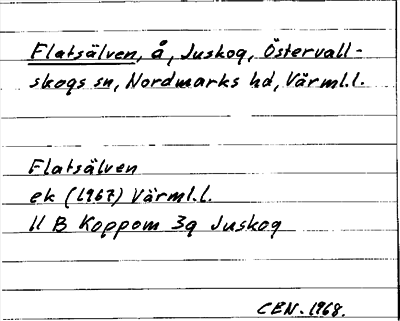 Flatsälven, å, Juskog, Östervall-
skogs sn, Nordmarks hd, Värml.l.
Flatsälven
ek (1967) Värml.l.
11 B Koppom 3g Juskog
CEN. 1968.